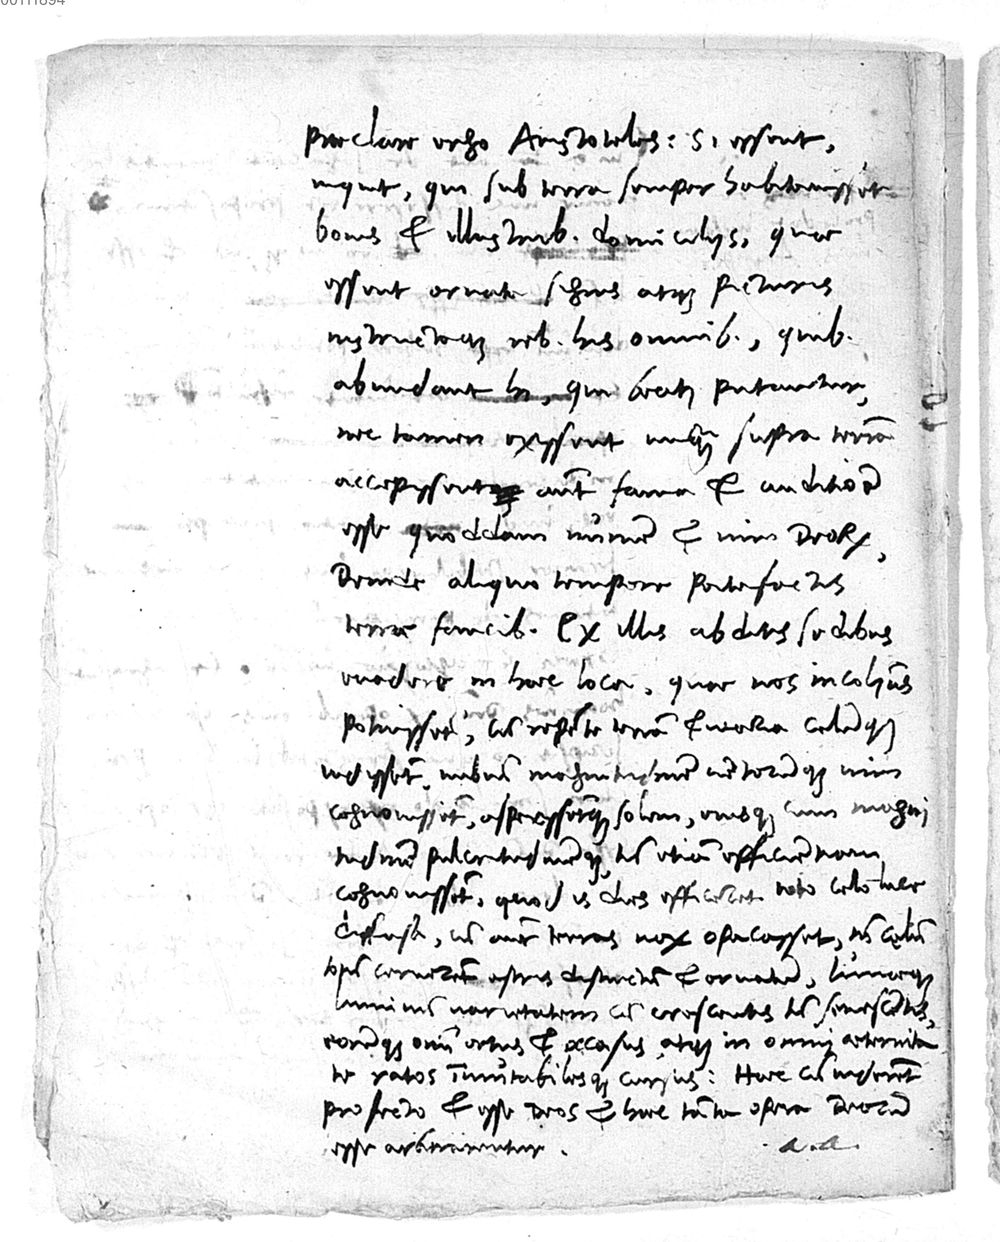 00111894
Praeclare ergo Aristoteles: Si essent,
inquit, qui sub terra semper habitavissēt
bonis & illustrib. domicilijs, quae
essent ornata signis atq; picturis
instructaq; reb. his omnib., quib.
abundant hi, qui beati putantur,
nec tamen exissent unq̄ supra terrā
accepissent aūt fama & auditiōē
esse quoddam numē & vim Deorū,
Deinde aliquo tempore patefactis
terrae faucib. Ex illis abditis sedibus
evadere in haec loca, quae nos incolimus
potuissēt, cū repēte terrā & maria celūq;
vidissēt, nubiū magnitudinē vētorūq; vim
cognovissēt, aspexissētq; solem, eiusq; cum magni
tudinē pulcritudinēq;, tū etiā efficientiam
cognovissēt, quod is dies efficeret toto celo luce
diffusa, cū autē terras nox opacasset, tū celū
totū cernerēt astris distinctū & ornatū, lunaeq;
luminū varietatem cū crescentis tū senescētis,
eorūq; omniū ortus & occasus atq; in omni aeternita
te ratos īmutabilesq; cursus: Haec cū viderēt
profecto & esse Deos & haec tāta opera Deorū
esse arbitrarentur.